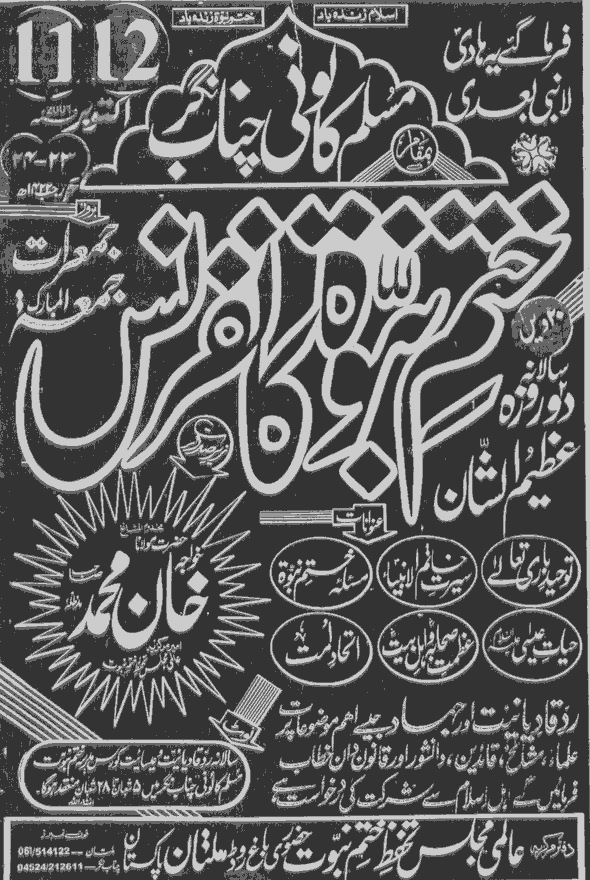 اسلام زندہ باد
ختم نبوۃ زندہ باد
فرما گئے یہ ہادی
لا نبی بعدی
بمقام
مسلم کالونی چناب نگر
11 12
اکتوبر 2001ء
۲۳-۲۴
رجب ۱۴۲۲ھ
بروز
جمعرات
جمعۃ المبارک
ختم نبوۃ کانفرنس
۲۰ویں
سالانہ
دو روزہ
عظیم الشان
زیر صدارت
مخدوم المشائخ
حضرت مولانا
خواجہ
خان محمد
صاحب
مدظلہ
امیر مرکزیہ
عالمی مجلس تحفظ ختم نبوت
عنوانات
توحید باری تعالٰے
سیرت خاتم الانبیاء
مسئلہ ختم نبوۃ
حیات عیسیٰ علیہ السلام
عظمت صحابہ و اہل بیت
اتحاد امت
رد قادیانیت اور جہاد جیسے اہم موضوعات پر
علماء، مشائخ، قائدین، دانشور اور قانون دان خطاب
فرمائیں گے اہل اسلام سے شرکت کی درخواست ہے
نوٹ
سالانہ رد قادیانیت و عیسائیت کورس زیر ختم نبوت
مسلم کالونی چناب نگر میں ۵ شعبان تا ۲۸ شعبان منعقد ہوگا۔
انشاء اللہ
دفتر مرکزیہ عالمی مجلس تحفظ ختم نبوت حضوری باغ روڈ ملتان پاکستان
ملتان — 061/514122
چناب نگر — 04524/212611